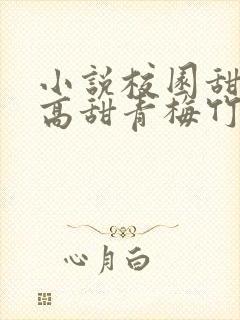 小説校園甜
高甜青梅竹
心月白